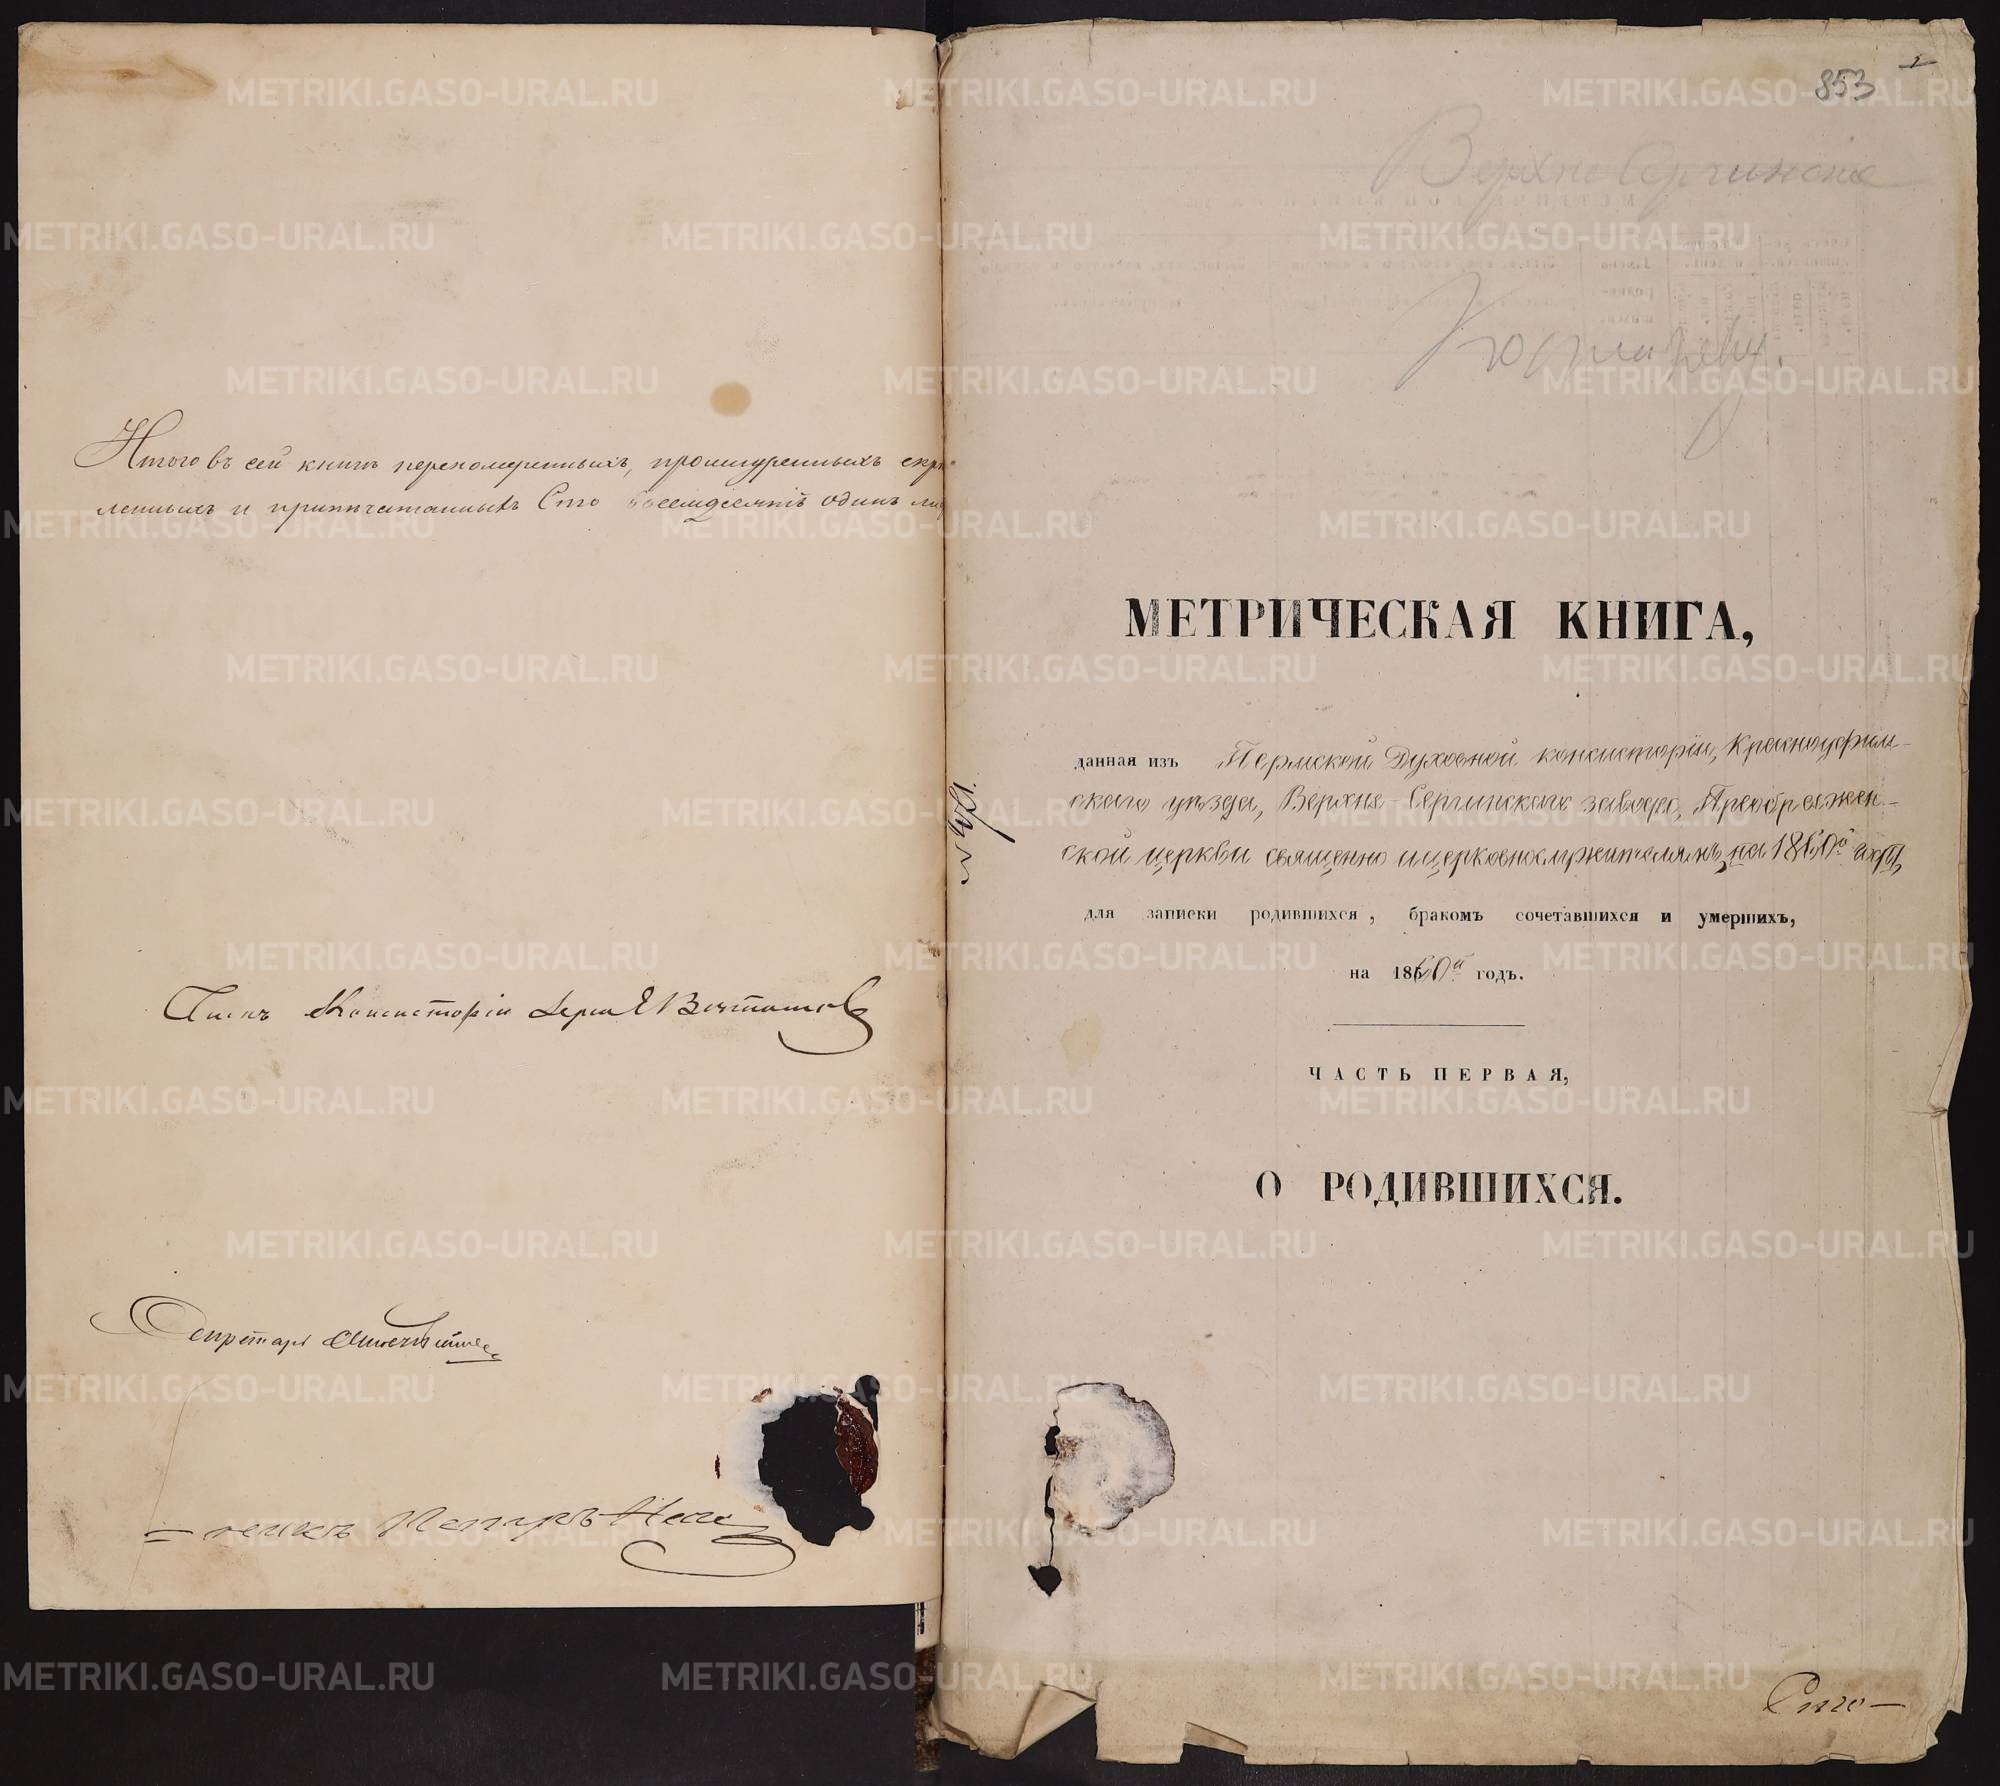 Итого въ сей книгѣ перенумеренныхъ, прошнуренныхъ скрѣ
пленныхъ и припечатанныхъ Сто восемдесятъ одинъ
Членъ Консисторіи
Секретарь
853
Верхне Сергинскіе
МЕТРИЧЕСКАЯ КНИГА,
данная изъ Пермской Духовной консисторіи, Красноуфим-
скаго уѣзда, Верхне-Сергинскаго завода, Преображен-
ской церкви священно и церковнослужителямъ, на 1860й годъ,
для записки родившихся, бракомъ сочетавшихся и умершихъ,
на 1860й годъ.
ЧАСТЬ ПЕРВАЯ,
О РОДИВШИХСЯ.
Сто-
METRIKI.GASO-URAL.RU